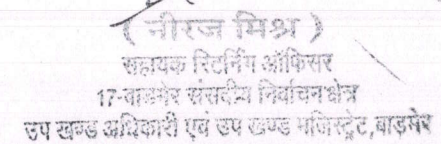 ( नीरज मिश्र )
सहायक रिटर्निंग ऑफिसर
17-बाडमेर संसदीय निर्वाचन क्षेत्र
उप खण्ड अधिकारी एवं उप खण्ड मजिस्ट्रेट,बाड़मेर